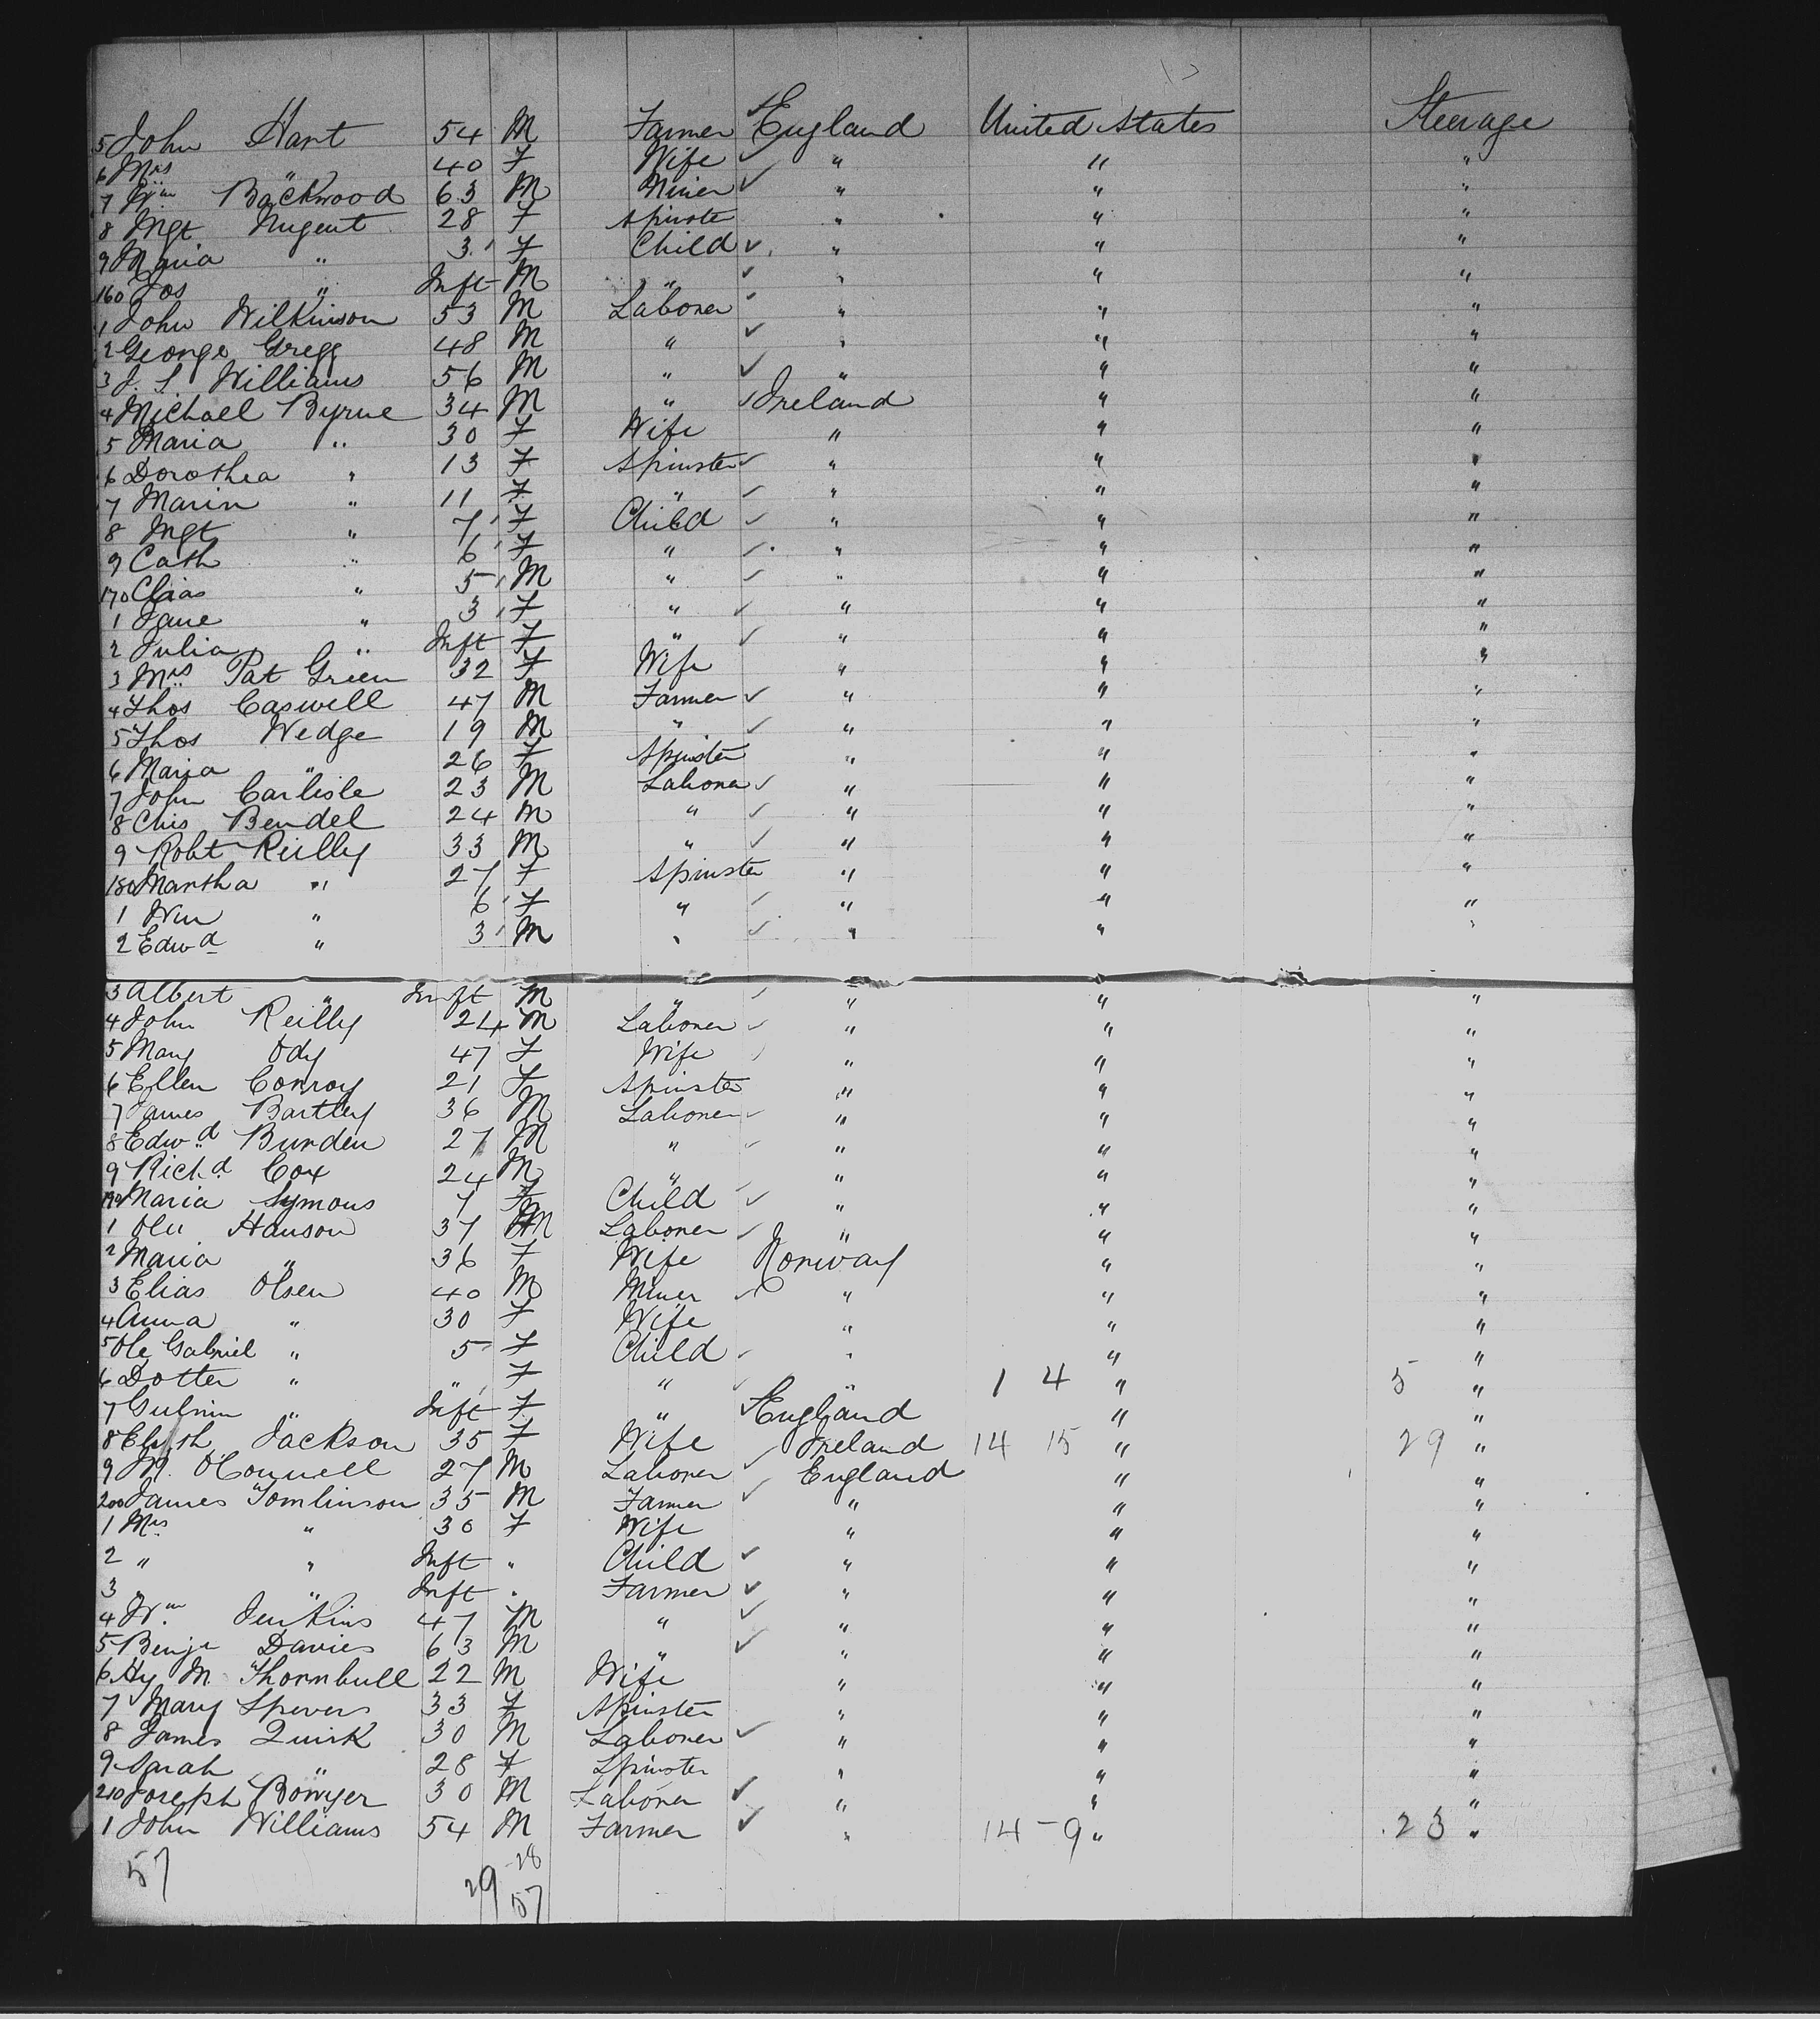 5 John Hart 54 M Farmer England United States Steerage
6 Mrs " 40 F Wife " " "
7 Wm Backwood 63 M Miner " " "
8 Mgt Nugent 28 F Spinster " " "
9 Maria " 3 F Child " " "
160 Jos " Inft M " " " "
1 John Wilkinson 53 M Laborer " " "
2 George Gregg 48 M " " " "
3 J. S. Williams 56 M " " " "
4 Michael Byrne 34 M " Ireland " "
5 Maria " 30 F Wife " " "
6 Dorothea " 13 F Spinster " " "
7 Marin " 11 F " " " "
8 Mgt " 7 F Child " " "
9 Cath " 6 F " " " "
170 Chas " 5 M " " " "
1 Jane " 3 F " " " "
2 Julia " Inft F " " " "
3 Mrs Pat Green 32 F Wife " " "
4 Thos Caswell 47 M Farmer " " "
5 Thos Wedge 19 M " " " "
6 Maria " 26 F Spinster " " "
7 John Carlisle 23 M Laborer " " "
8 Chis Bendel 24 M " " " "
9 Robt Reilly 33 M " " " "
180 Martha " 27 F Spinster " " "
1 Wm " 6 F " " " "
2 Edwd " 3 M " " " "
3 Albert " Inft M " " " "
4 John Reilly 24 M Laborer " " "
5 Mary Ody 47 F Wife " " "
6 Ellen Conroy 21 F Spinster " " "
7 James Bartley 36 M Laborer " " "
8 Edwd Burden 27 M " " " "
9 Richd Cox 24 M " " " "
190 Maria Symons 7 F Child " " "
1 Ole Hanson 37 M Laborer " " "
2 Maria " 36 F Wife Norway " "
3 Elias Olsen 40 M Miner " " "
4 Anna " 30 F Wife " " "
5 Ole Gabriel " 5 F Child " " "
6 Dotter " " F " " 1 4 " 5 "
7 " Inft F " England " "
8 Jackson 35 F Wife Ireland 14 15 " 29 "
9 M. O'Connell 27 M Laborer England " "
200 James Tomlinson 35 M Farmer " " "
1 Mrs " 30 F Wife " " "
2 " " Inft " Child " " "
3 " " Inft " Farmer " " "
4 Wm Jenkins 47 M " " " "
5 Benjn Davies 63 M " " " "
6 Hy M. Thornbull 22 M Wife " " "
7 Mary Spevers 33 F Spinster " " "
8 James Quirk 30 M Laborer " " "
9 Sarah " 28 F Spinster " " "
210 Joseph Bowyer 30 M Laborer " " "
1 John Williams 54 M Farmer " 14-9 " 23 "
57 29 28
57